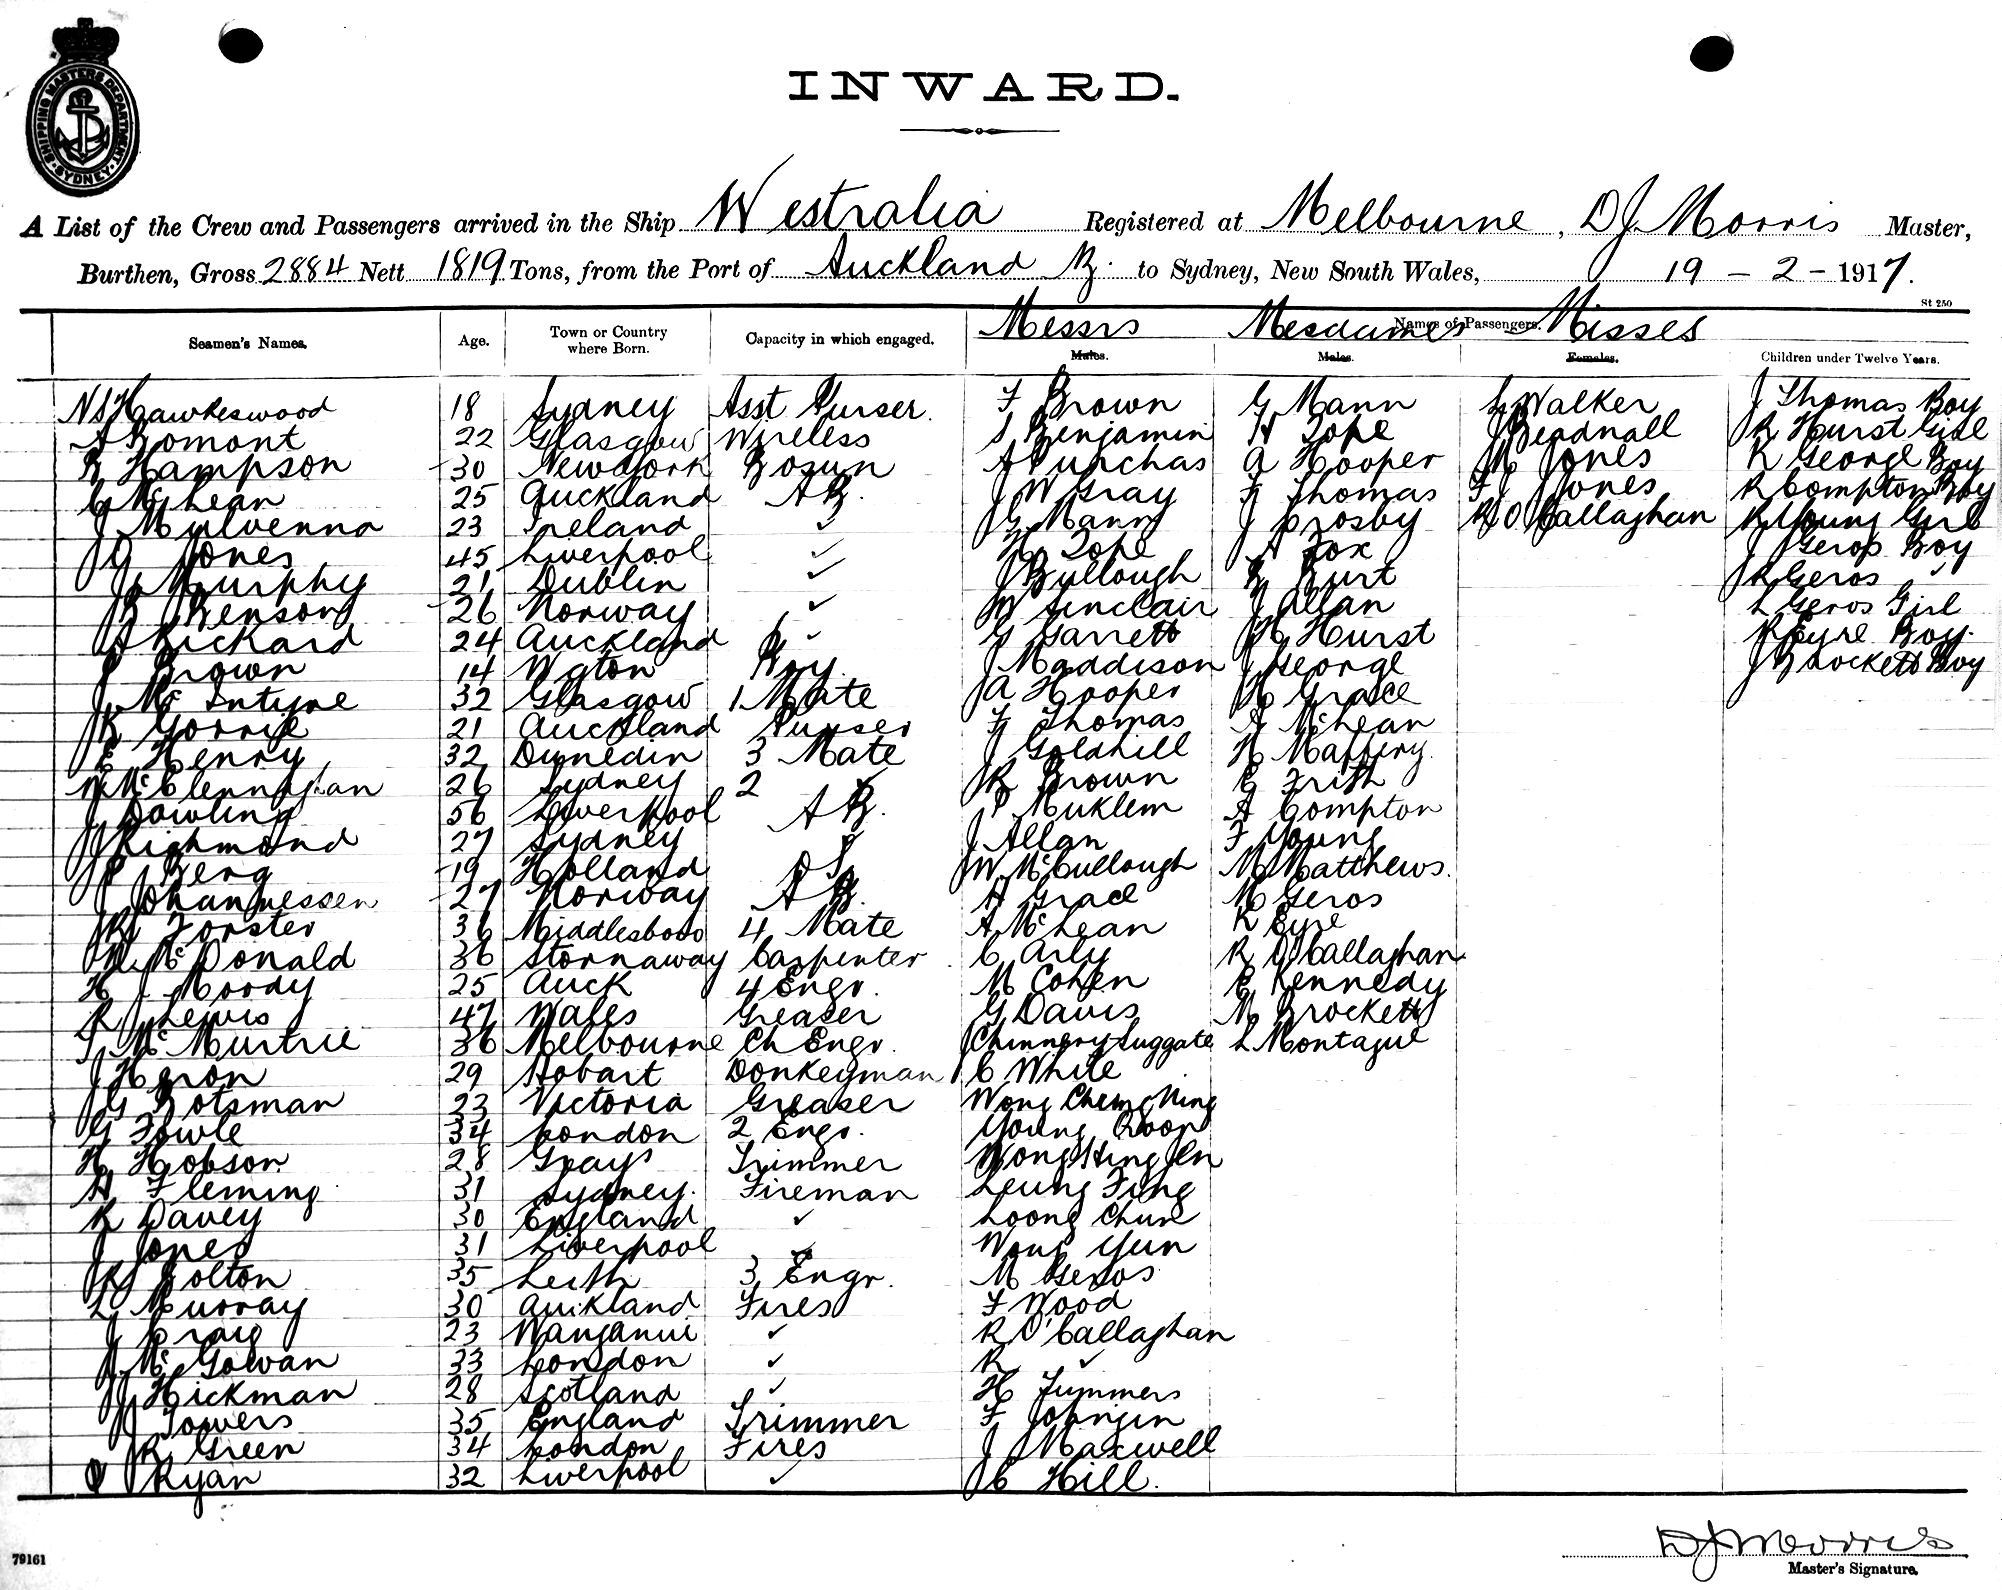 SHIPPING MASTERS DEPARTMENT SYDNEY
INWARD.
A List of the Crew and Passengers arrived in the Ship Westralia Registered at Melbourne, D J Morris Master,
Burthen, Gross 2884 Nett 1819 Tons, from the Port of Auckland to Sydney, New South Wales, 19 - 2 - 1917.
St 250
Messrs Mesdames Names of Passengers. Misses
Seamen's Names. Age. Town or Country where Born. Capacity in which engaged. Males. Males. Females. Children under Twelve Years.
N S Hawkeswood 18 Sydney Asst Purser. F Brown G Mann Walker J Thomas Boy
A Bomont 22 Glasgow Wireless S Benjamin H Pope Beadnall R Hurst Girl
R Hampson 30 New York Bosun A Purchas A Hooper M Jones R George Boy
C McLean 25 Auckland A B. J W Gray F Thomas F Jones R Compton Boy
J Mulvenna 23 Ireland ✓ J G Mann J Crosby R O'Callaghan R Young Girl
J G Jones 45 Liverpool ✓ H Pope A Fox J Geros Boy
J Murphy 21 Dublin ✓ J Bullough B Burt R Geros ✓
B Benson 26 Norway ✓ W Sinclair J Allan L Geros Girl
A Rickard 24 Auckland ✓ G Garrett H Hurst R Eyre Boy.
P Brown 14 Wgton Boy. J Maddison J George J Brockett Boy
J McIntyre 32 Glasgow 1 Mate A Hooper H Grace
R Gorrie 21 Auckland Purser F Thomas A McLean
E Henry 32 Dunedin 3 Mate J Goldhill H Maffery.
McClennaghan 26 Sydney 2 ✓ R Brown E Frith
J Dowling 56 Liverpool A B. P Muklem A Compton
J Richmond 27 Sydney ✓ J Allan F Young
P Berg 19 Holland O S. W McCullough M Matthews.
J Johannessen 27 Norway A B. A Grace M Geros
R Forster 36 Middlesboro 4 Mate A McLean R Eyre
McDonald 36 Stornaway Carpenter C Arly R O'Callaghan
H J Moody 25 Auck 4 Engr. M Cohen E Kennedy
R J Lewis 47 Wales Greaser G Davis M Brockett
McMurtrie 36 Melbourne Ch Engr. Chinnery Suggate L Montague
J Heron 29 Hobart Donkeyman C White
J G Botsman 23 Victoria Greaser Wong Cheng Ning
G Fowle 34 London 2 Engr. Young Qoon
H Hobson 28 Grays Trimmer Wong Hing Jen
H Fleming 31 Sydney. Fireman Leung Fing
R Davey 30 England ✓ Loong Chun
J Jones 31 Liverpool ✓ Wong Yun
R Bolton 35 Leith 3 Engr. M Geros
L Murray 30 Auckland Fires F Wood
J Craig 23 Wanganui ✓ R O'Callaghan
McGowan 33 London ✓ R ✓
J Hickman 28 Scotland ✓ H Summers
Towers 35 England Trimmer F Johnjin
R Green 34 London Fires J Maxwell
Ryan 32 Liverpool ✓ C Hill.
D J Morris
79161 Master's Signature.